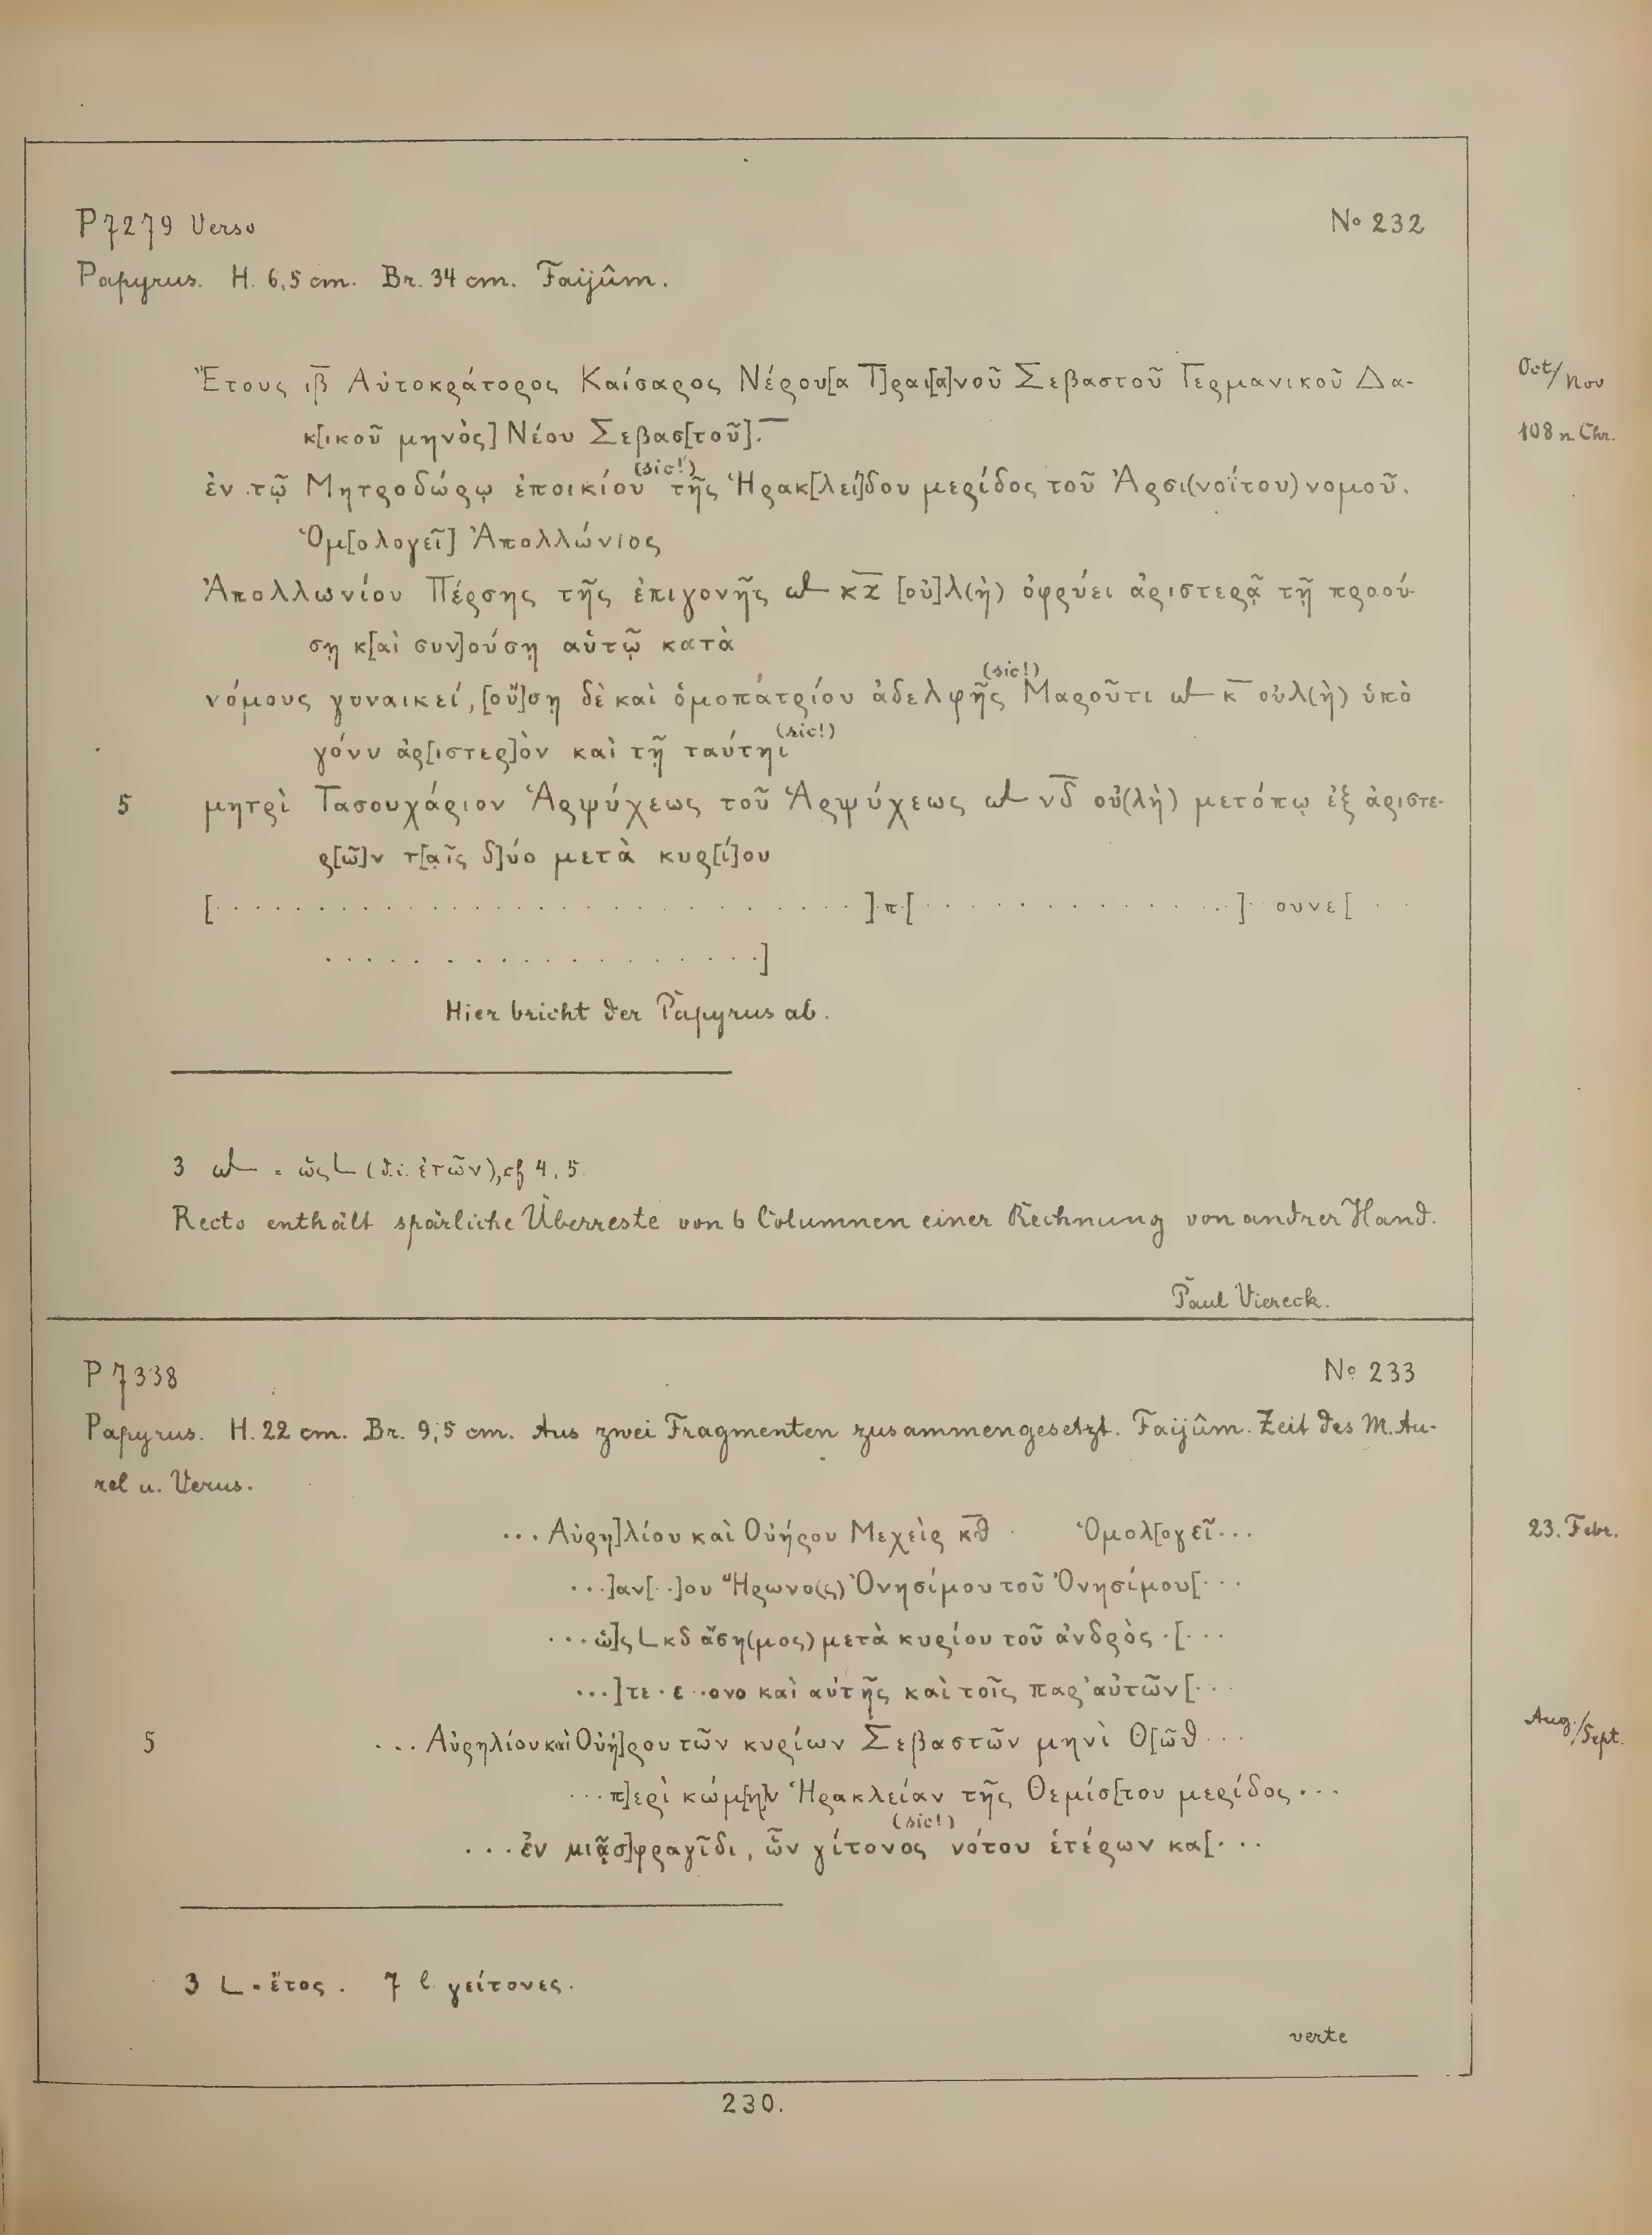 P 7279 Verso
Nº 232
Papyrus. H. 6,5 cm. Br. 34 cm. Faijûm.
Ἔτους ιβ̅ Αὐτοκράτορος Καίσαρος Νέρου[α Τ]ραι[α]νοῦ Σεβαστοῦ Γερμανικοῦ Δα-
Oct/Nov
κ[ικοῦ μηνὸς] Νέου Σεβασ[τοῦ].
108 n. Chr.
(sic!)
ἐν τῷ Μητροδώρῳ ἐποικίου τῆς Ἡρακ[λεί]δου μερίδος τοῦ Ἀρσι(νοΐτου) νομοῦ.
Ὁμ[ολογεῖ] Ἀπολλώνιος
Ἀπολλωνίου Πέρσης τῆς ἐπιγονῆς [οὐ]λ(ὴ) ὀφρύει ἀριστερᾷ τῇ προού-
σῃ κ[αὶ συν]ούσῃ αὐτῷ κατὰ
(sic!)
νόμους γυναικεί, [οὔ]σῃ δὲ καὶ ὁμοπατρίου ἀδελφῆς Μαροῦτι ωL κ̅ οὐλ(ὴ) ὑπὸ
(sic!)
γόνυ ἀρ[ιστερ]ὸν καὶ τῇ ταύτηι
5 μητρὶ Τασουχάριον Ἁρψύχεως τοῦ Ἁρψύχεως ωL νδ̅ οὐ(λὴ) μετόπῳ ἐξ ἀριστε-
ρ[ῶ]ν τ[αῖς δ]ύο μετὰ κυρ[ί]ου
[. . . . . . . . . . . . . . . . . . . . . . . . .]·π·[. . . . . . . . . . . . . .]· ουνε[ . .
. . . . . . . . . . . . . . . . . .]
Hier bricht der Papyrus ab.
3 ωL = ὡς L (d.i. ἐτῶν), cf 4, 5.
Recto enthält spärliche Überreste von 6 Columnen einer Rechnung von andrer Hand.
Paul Viereck.
P 7338
Nº 233
Papyrus. H. 22 cm. Br. 9,5 cm. Aus zwei Fragmenten zusammengesetzt. Faijûm. Zeit des M. Au-
rel u. Verus.
... Αὐρη]λίου καὶ Οὐήρου Μεχεὶρ κθ̅ Ὁμολ[ογεῖ...
23. Febr.
...]αν[..]ου Ἥρωνο(ς) Ὀνησίμου τοῦ Ὀνησίμου[...
... ὡ]ς L κδ ἄση(μος) μετὰ κυρίου τοῦ ἀνδρὸς ·[...
...]τε·ε··ονο καὶ αὐτῆς καὶ τοῖς παρ' αὐτῶν[...
5 ... Αὐρηλίου καὶ Οὐή]ρου τῶν κυρίων Σεβαστῶν μηνὶ Θ[ὼθ...
Aug./Sept.
... π]ερὶ κώμ[η]ν Ἡρακλείαν τῆς Θεμίσ[του μερίδος...
(sic!)
... ἐν μιᾷ σ]φραγῖδι, ὧν γίτονος νότου ἑτέρων κα[...
3 L = ἔτος. 7 l. γείτονες.
verte
230.